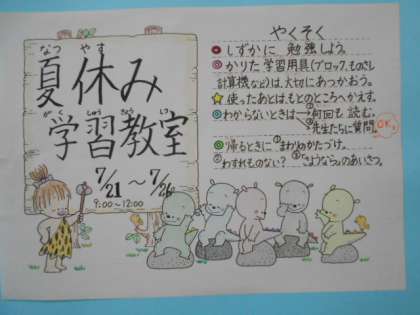 なつ やす
夏休み
がく しゅう きょう しつ
学習教室
7/21 ～ 7/26
9:00～12:00
やくそく
しずかに 勉強しよう。
かりた学習用具(ブロック、ものさし
計算機など)は、大切にあつかおう。
使ったあとは、もとのところへかえす。
わからないときは→①何回も読む。
②先生たちに質問。OK。
帰るときに ①まわりのかたづけ。
②わすれものない? ③「さようなら。」のあいさつ。